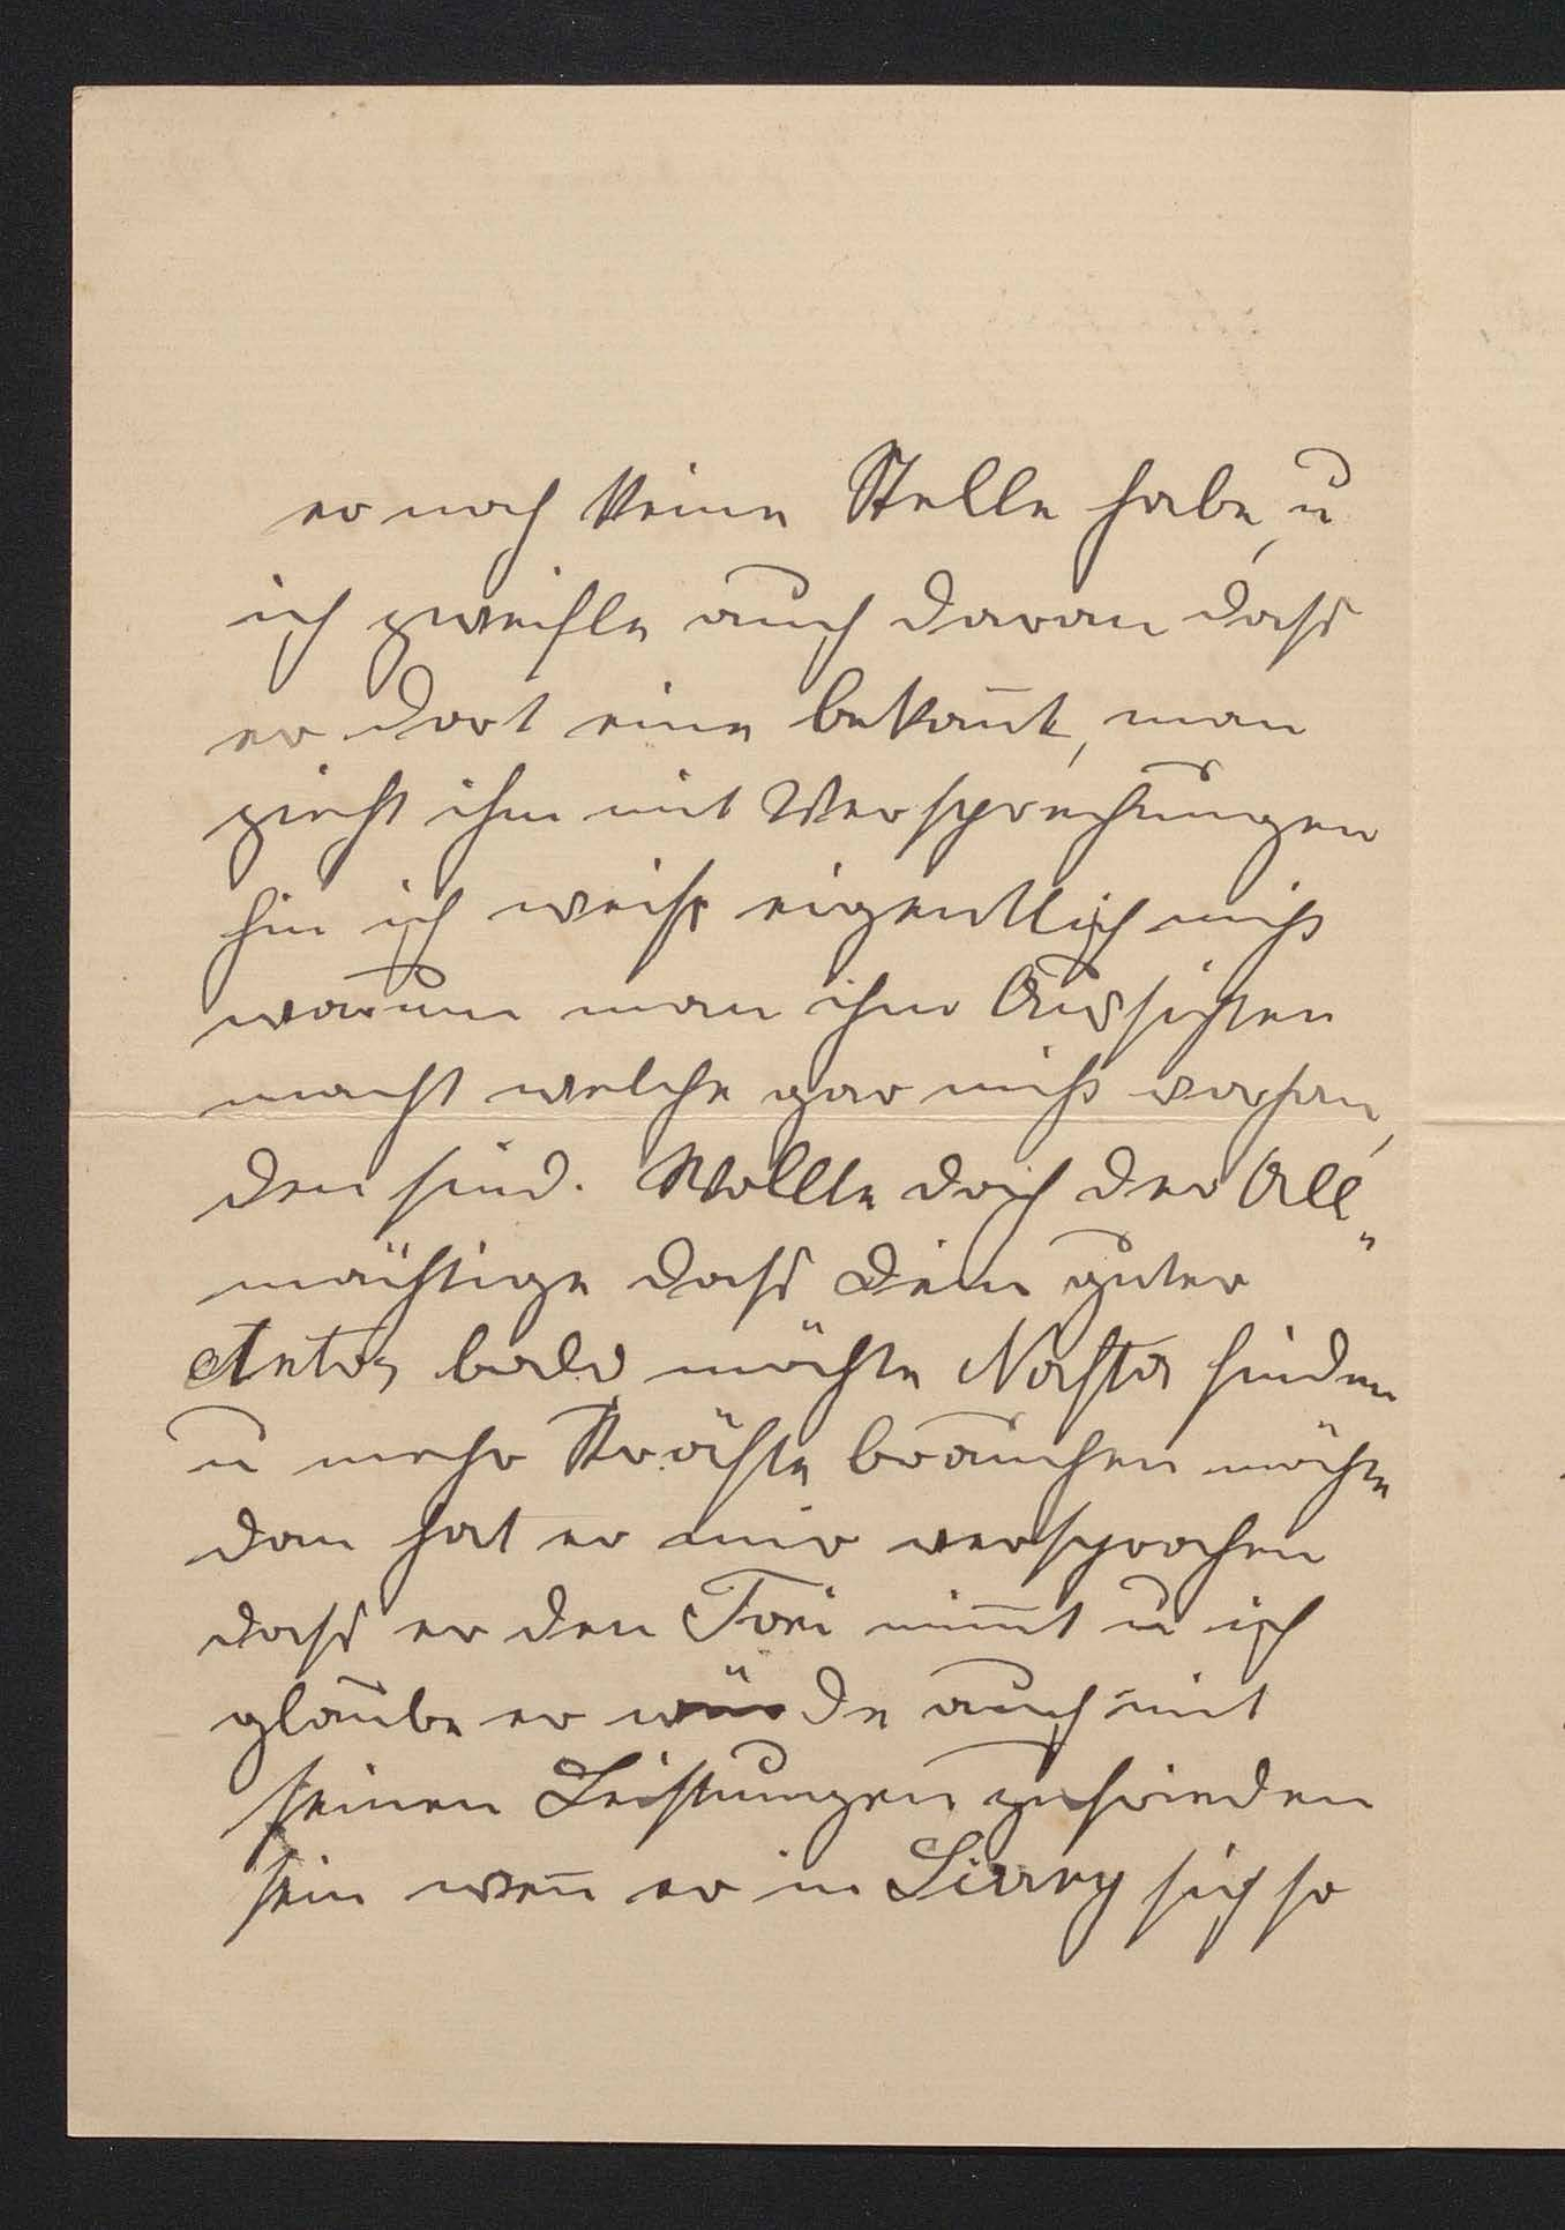 er noch keine Stelle habe, u
ich zweifle auch daran dass
er dort eine bekan̄t, man
zieht ihm mit Versprechungen
hin ich weiss eigentlich nicht
warum man ihm Aussichten
macht welche gar nicht vorhan„
den sind. Wollte doch der All„
mächtige dass Dein guter
Antos bald möchte Nafta finden
u mehr Kräfte brauchen möchte
dan hat er mir versprochen
dass er den Fori nim̄t u ich
glaube er würde auch mit
seinen Leistungen zufrieden
sein wen̄ er in sich so